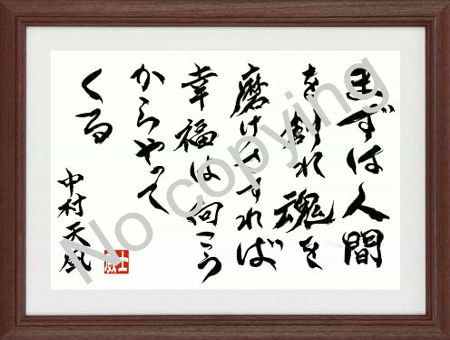 まずは人間
を創れ魂を
磨けさすれば
幸福は向こう
からやって
くる
中村天風
No copying